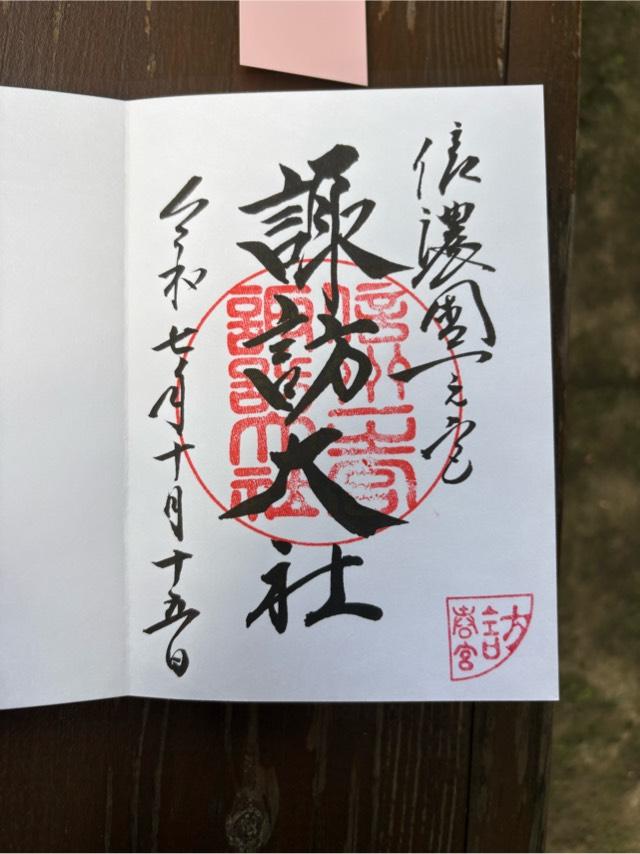 信濃國一之宮
諏訪大社
令和七年十月十五日
諏訪大社
春宮